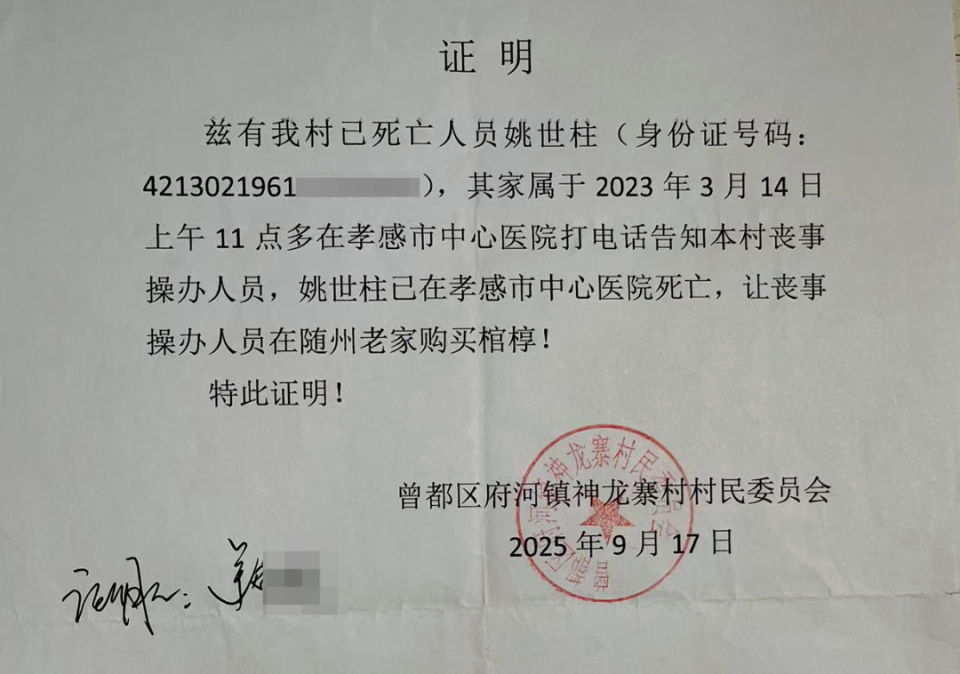 证 明
兹有我村已死亡人员姚世柱（身份证号码：
4213021961
），其家属于 2023 年 3 月 14 日
上午 11 点多在孝感市中心医院打电话告知本村丧事
操办人员，姚世柱已在孝感市中心医院死亡，让丧事
操办人员在随州老家购买棺椁！
特此证明！
曾都区府河镇神龙寨村村民委员会
2025 年 9 月 17 日
神龙寨村民委员会
证明人：